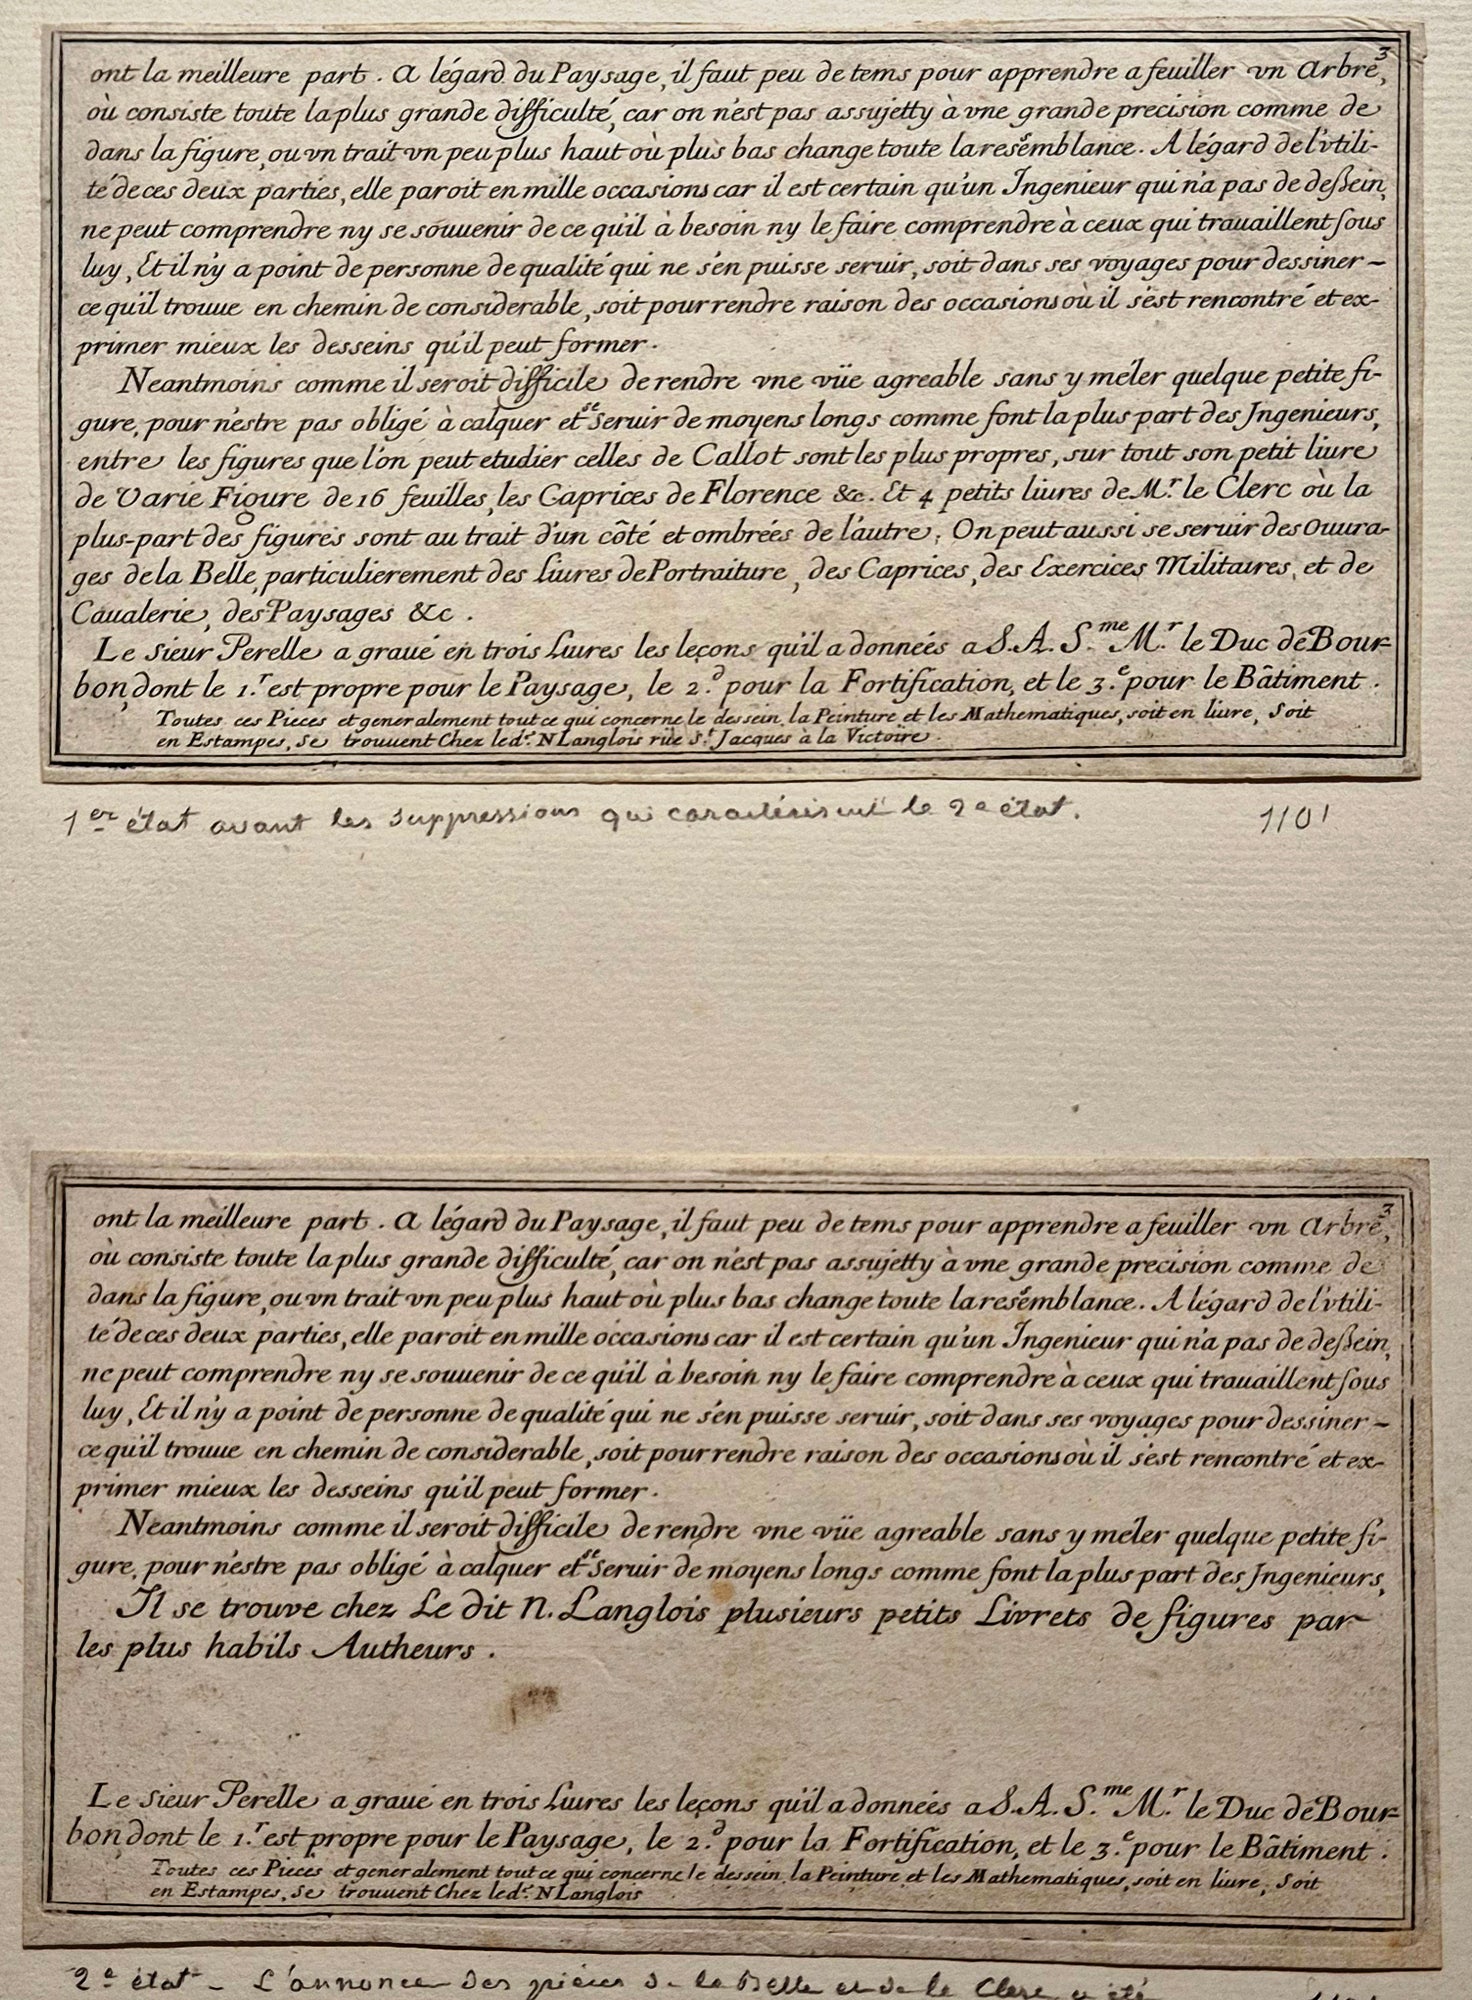 3
ont la meilleure part. A légard du Paysage, il faut peu de tems pour apprendre a feuiller vn Arbre,
où consiste toute la plus grande difficulté, car on n'est pas assujetty à vne grande precision comme de
dans la figure, ou vn trait vn peu plus haut où plus bas change toute la resemblance. A légard de l'vtili-
té de ces deux parties, elle paroit en mille occasions car il est certain qu'un Ingenieur qui n'a pas de deßein,
ne peut comprendre ny se souuenir de ce qu'il à besoin ny le faire comprendre à ceux qui trauaillent sous
luy, Et il n'y a point de personne de qualité qui ne s'en puisse seruir, soit dans ses voyages pour dessiner-
ce qu'il trouue en chemin de considerable, soit pour rendre raison des occasions où il s'est rencontré et ex-
primer mieux les desseins qu'il peut former.
Neantmoins comme il seroit difficile de rendre vne vüe agreable sans y méler quelque petite fi-
gure, pour n'estre pas obligé à calquer et se seruir de moyens longs comme font la plus part des Ingenieurs,
entre les figures que l'on peut etudier celles de Callot sont les plus propres, sur tout son petit liure
de Varie Figure de 16 feuilles, les Caprices de Florence &c. Et 4 petits liures de Mr. le Clerc où la
plus-part des figures sont au trait d'un côté et ombrées de l'autre, On peut aussi se seruir des Ouura-
ges de la Belle, particulierement des Liures de Portraiture, des Caprices, des Exercices Militaires, et de
Caualerie, des Paysages &c.
Le Sieur Perelle a graué en trois Liures les leçons qu'il a données a S. A. S.me M.r le Duc de Bour-
bon, dont le 1.r est propre pour le Paysage, le 2.d pour la Fortification, et le 3.e pour le Bâtiment.
Toutes ces Pieces et generalement tout ce qui concerne le dessein, la Peinture et les Mathematiques, soit en liure, Soit
en Estampes, Se trouuent Chez led.t N Langlois rüe St. Jacques à la Victoire.
1er état avant les suppressions qui caractérisent le 2e état. 1101
3
ont la meilleure part. A légard du Paysage, il faut peu de tems pour apprendre a feuiller vn Arbre,
où consiste toute la plus grande difficulté, car on n'est pas assujetty à vne grande precision comme de
dans la figure, ou vn trait vn peu plus haut où plus bas change toute la resemblance. A légard de l'vtili-
té de ces deux parties, elle paroit en mille occasions car il est certain qu'un Ingenieur qui n'a pas de deßein,
ne peut comprendre ny se souuenir de ce qu'il à besoin ny le faire comprendre à ceux qui trauaillent sous
luy, Et il n'y a point de personne de qualité qui ne s'en puisse seruir, soit dans ses voyages pour dessiner-
ce qu'il trouue en chemin de considerable, soit pour rendre raison des occasions où il s'est rencontré et ex-
primer mieux les desseins qu'il peut former.
Neantmoins comme il seroit difficile de rendre vne vüe agreable sans y méler quelque petite fi-
gure, pour n'estre pas obligé à calquer et se seruir de moyens longs comme font la plus part des Ingenieurs,
Il se trouve chez Le dit N. Langlois plusieurs petits Livrets de figures par
les plus habils Autheurs.
Le Sieur Perelle a graué en trois Liures les leçons qu'il a données a S. A. S.me M.r le Duc de Bour-
bon, dont le 1.r est propre pour le Paysage, le 2.d pour la Fortification, et le 3.e pour le Bâtiment.
Toutes ces Pieces et generalement tout ce qui concerne le dessein, la Peinture et les Mathematiques, soit en liure, Soit
en Estampes, Se trouuent Chez led.t N Langlois
2e état - L'annonce des pièces de la Belle et de le Clerc a été